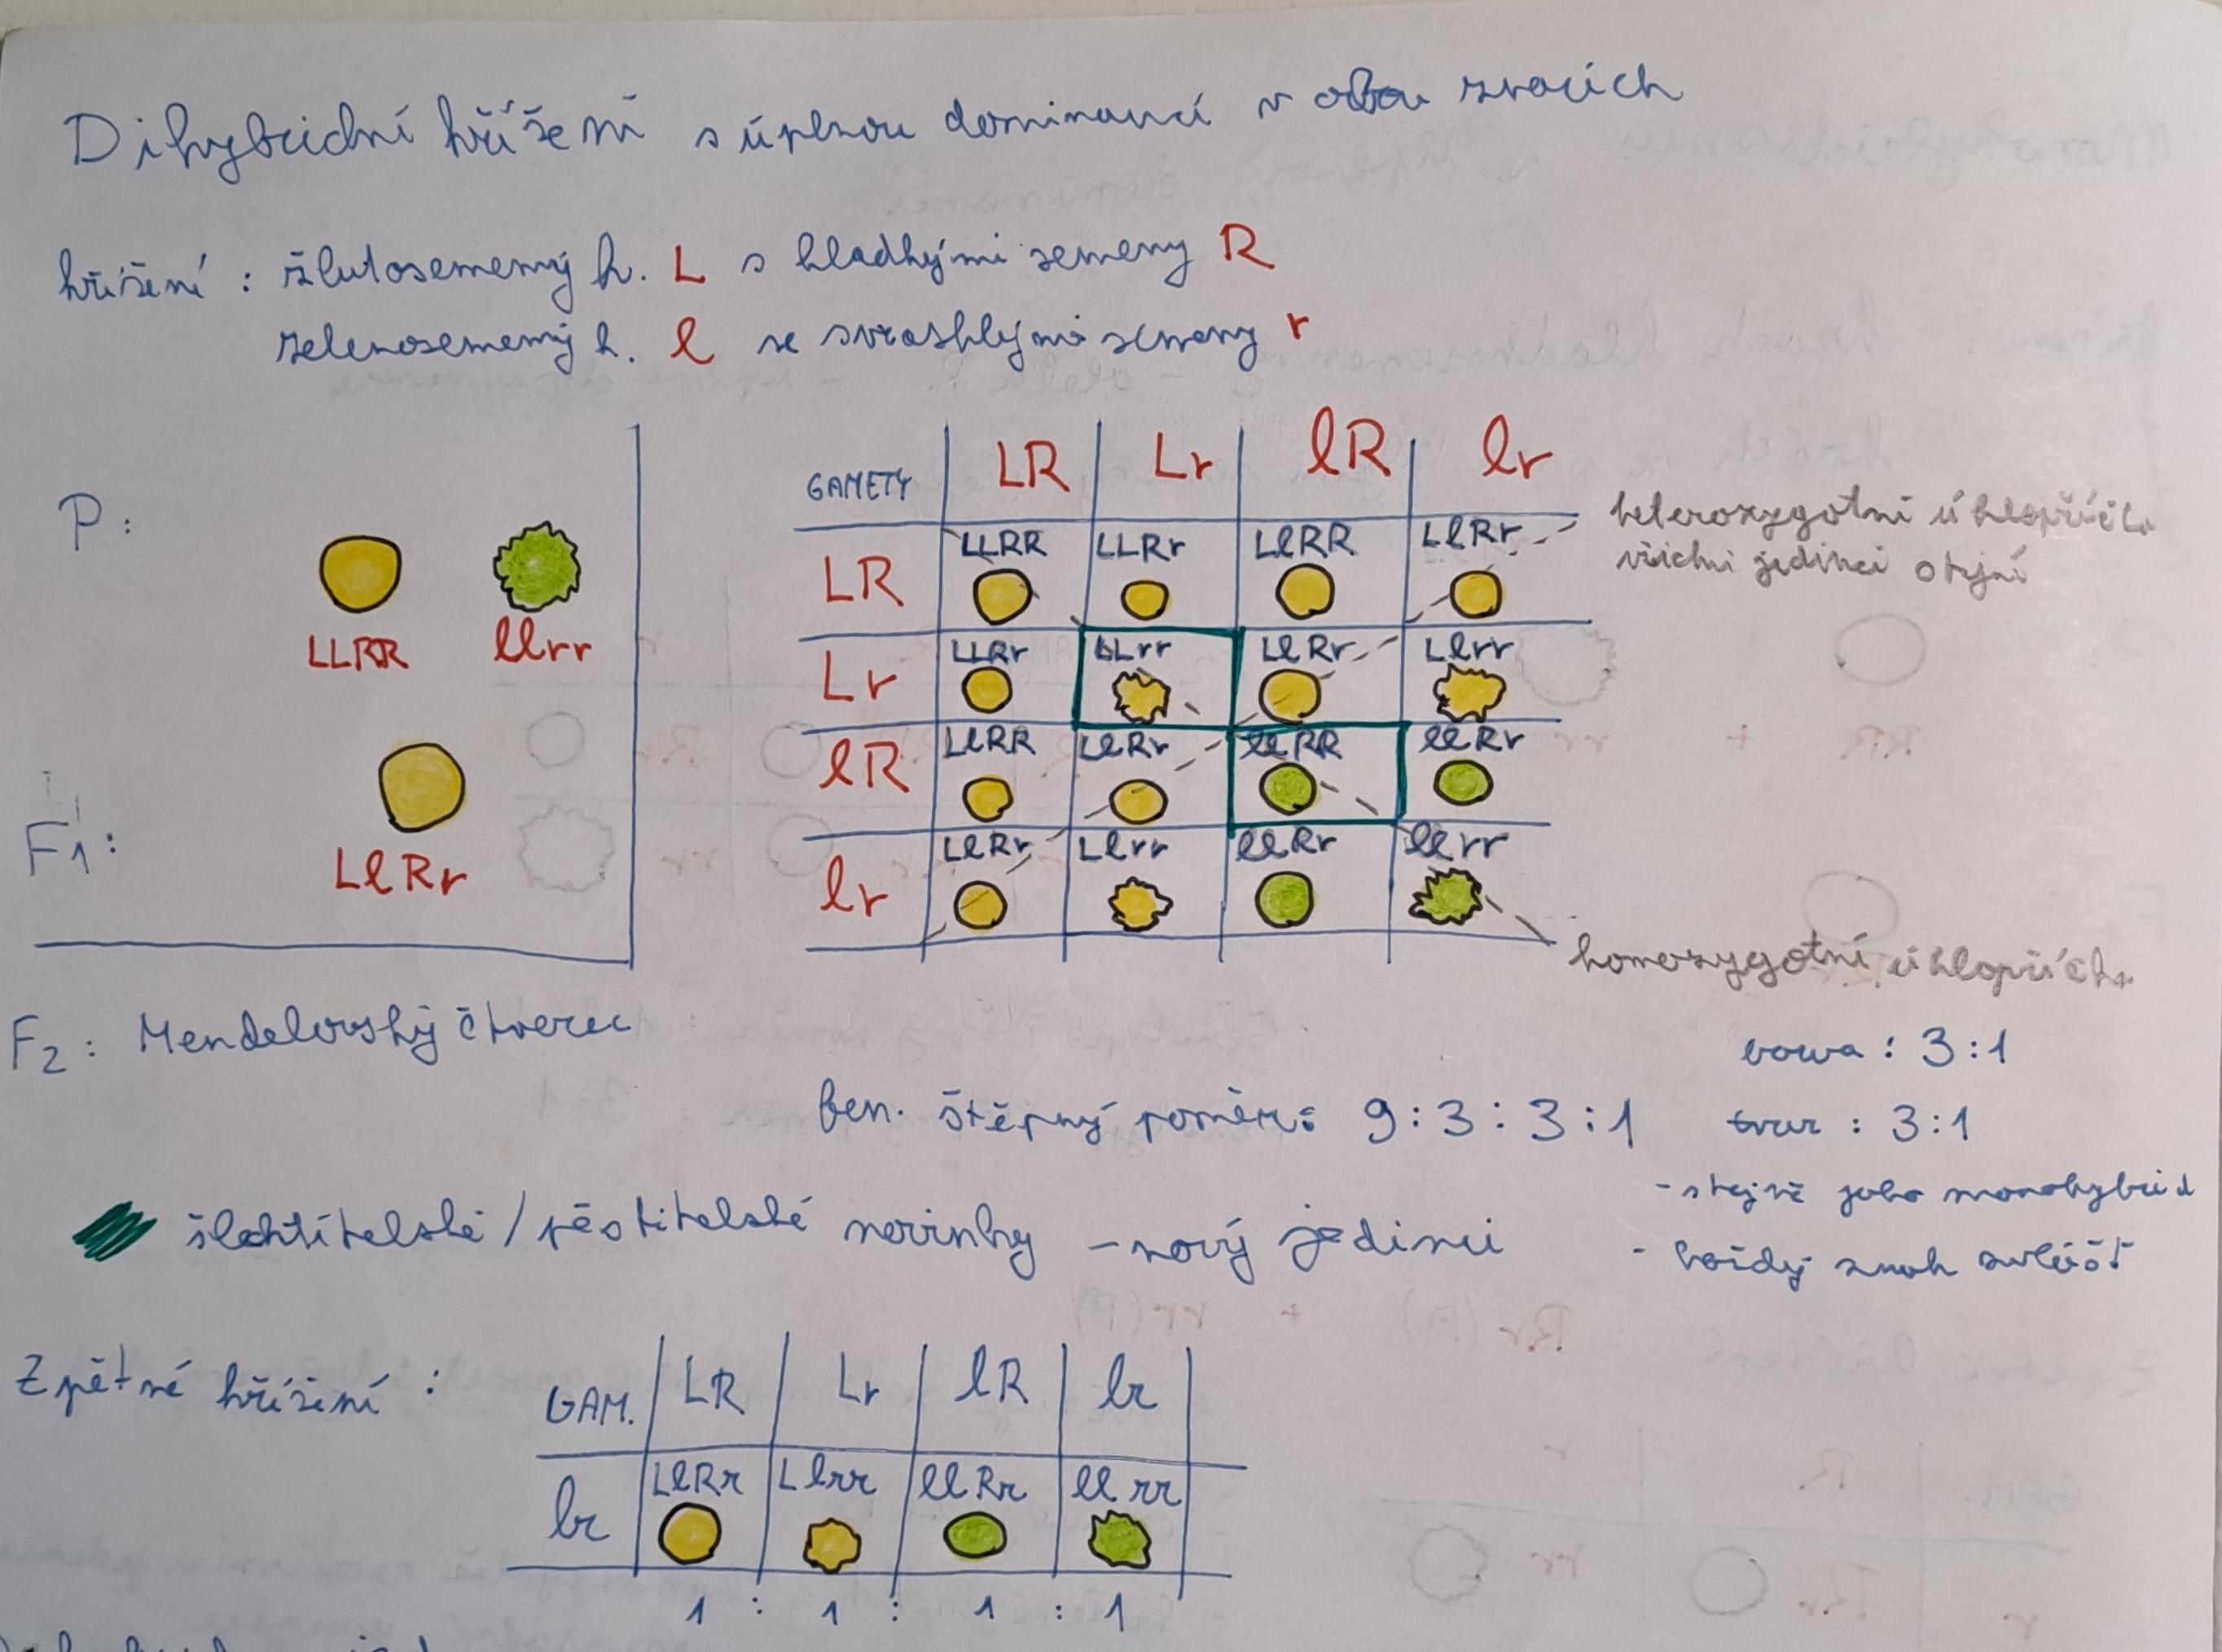 Dihybridní křížení s úplnou dominancí v obou znacích
křížení : žlutosemenný h. L s hladkými semeny R
zelenosemenný h. l se svrasklými semeny r
P :
LLRR llrr
F1 :
LlRr
GAMETY LR Lr lR lr
LR LLRR LLRr LlRR LlRr
Lr LLRr LLrr LlRr Llrr
lR LlRR LlRr llRR llRr
lr LlRr Llrr llRr llrr
heterozygotní úhlopříčka
všichni jedinci stejní
homozygotní úhlopříčka
F2 : Mendelovský čtverec
barva : 3:1
fen. štěpný poměr : 9 : 3 : 3 : 1
tvar : 3:1
- stejně jako monohybrid
- každý znak zvlášť
šlechtitelské / pěstitelské novinky - nový jedinci
Zpětné křížení :
GAM. LR Lr lR lr
lr LlRr Llrr llRr llrr
1 : 1 : 1 : 1